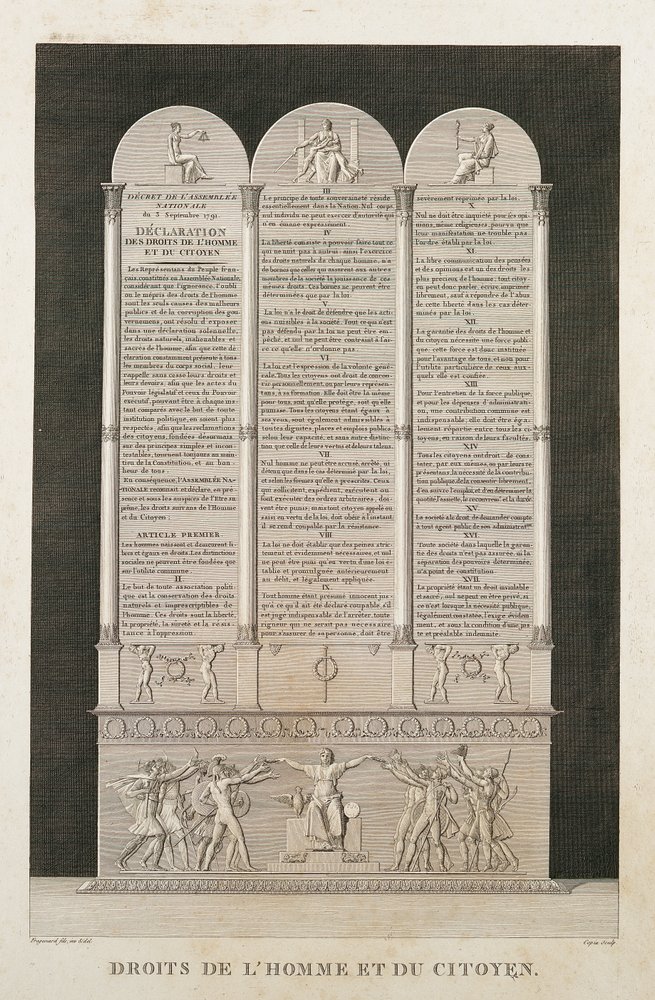 DÉCRET DE L'ASSEMBLÉE
NATIONALE
du 3 Septembre 1791.
DÉCLARATION
DES DROITS DE L'HOMME
ET DU CITOYEN
Les Représentans du Peuple fran-
çais, constitués en Assemblée Nationale,
considérant que l'ignorance, l'oubli
ou le mépris des droits de l'homme
sont les seuls causes des malheurs
publics et de la corruption des gou-
vernemens, ont résolu d'exposer
dans une déclaration solemnelle,
les droits naturels, inaliénables et
sacrés de l'homme, afin que cette dé-
claration constamment présente à tous
les membres du corps social, leur
rappelle sans cesse leurs droits et
leurs devoirs, afin que les actes du
Pouvoir législatif et ceux du Pouvoir
exécutif, pouvant être à chaque ins-
tant comparés avec le but de toute
institution politique, en soient plus
respectés, afin que les réclamations
des citoyens, fondées désormais
sur des principes simples et incon-
testables, tournent toujours au main-
tien de la Constitution, et au bon-
heur de tous.
En conséquence, l'ASSEMBLÉE NA-
TIONALE reconnait et déclare, en pré-
sence et sous les auspices de l'Etre su-
prême, les droits suivans de l'Homme
et du Citoyen.
ARTICLE PREMIER.
Les hommes naissent et demeurent li-
bres et égaux en droits. Les distinctions
sociales ne peuvent être fondées que
sur l'utilité commune.
II
Le but de toute association politi-
que est la conservation des droits
naturels et imprescriptibles de
l'homme. Ces droits sont la liberté,
la propriété, la sûreté et la résis-
tance à l'oppression.
III
Le principe de toute souveraineté réside
essentiellement dans la Nation. Nul corps,
nul individu ne peut exercer d'autorité qui
n'en émane expressément.
IV
La liberté consiste à pouvoir faire tout ce
qui ne nuit pas à autrui: ainsi l'exercice
des droits naturels de chaque homme, n'a
de bornes que celles qui assurent aux autres
membres de la société la jouissance de ces
mêmes droits. Ces bornes ne peuvent être
déterminées que par la loi.
V
La loi n'a le droit de défendre que les acti-
ons nuisibles à la société. Tout ce qui n'est
pas défendu par la loi ne peut être em-
pêché, et nul ne peut être contraint à fai-
re ce qu'elle n'ordonne pas.
VI
La loi est l'expression de la volonté géné-
rale. Tous les citoyens ont droit de concou-
rir personnellement, ou par leurs représen-
tans, à sa formation. Elle doit être la même
pour tous, soit qu'elle protège, soit qu'elle
punisse. Tous les citoyens étant égaux à
ses yeux, sont également admissibles à
toutes dignités, places et emplois publics,
selon leur capacité, et sans autre distinc-
tion que celle de leurs vertus et de leurs talens.
VII
Nul homme ne peut être accusé, arrêté, ni
détenu que dans le cas déterminé par la loi,
et selon les formes qu'elle a prescrites. Ceux
qui sollicitent, expédient, exécutent ou
font exécuter des ordres arbitraires, doi-
vent être punis; mais tout citoyen appelé ou
saisi en vertu de la loi, doit obéir à l'instant,
il se rend coupable par la résistance.
VIII
La loi ne doit établir que des peines stric-
tement et évidemment nécessaires, et nul
ne peut être puni qu'en vertu d'une loi é-
tablie et promulguée antérieurement
au délit, et légalement appliquée.
IX
Tout homme étant présumé innocent jus-
qu'à ce qu'il ait été déclaré coupable, s'il
est jugé indispensable de l'arrêter, toute
rigueur qui ne serait pas nécessaire
pour s'assurer de sa personne, doit être
sévèrement réprimée par la loi.
X
Nul ne doit être inquiété pour ses opi-
nions, même religieuses, pourvu que
leur manifestation ne trouble pas
l'ordre établi par la loi.
XI
La libre communication des pensées
et des opinions est un des droits les
plus précieux de l'homme: tout citoy-
en peut donc parler, écrire, imprimer
librement, sauf à répondre de l'abus
de cette liberté dans les cas déter-
minés par la loi.
XII
La garantie des droits de l'Homme et
du citoyen nécessite une force publi-
que: cette force est donc instituée
pour l'avantage de tous, et non pour
l'utilité particulière de ceux aux-
quels elle est confiée.
XIII
Pour l'entretien de la force publique,
et pour les dépenses d'administrati-
on, une contribution commune est
indispensable; elle doit être éga-
lement répartie entre tous les ci-
toyens, en raison de leurs facultés.
XIV
Tous les citoyens ont droit de cons-
tater, par eux-mêmes, ou par leurs re-
présentans, la nécessité de la contribu-
tion publique, de la consentir librement,
d'en suivre l'emploi, et d'en déterminer la
quotité, l'assiette, le recouvremt. et la durée.
XV
La société a le droit de demander compte
à tout agent public de son administration.
XVI
Toute société dans laquelle la garan-
tie des droits n'est pas assurée, ni la
séparation des pouvoirs déterminée,
n'a point de constitution.
XVII
La propriété étant un droit inviolable
et sacré, nul ne peut en être privé, si
ce n'est lorsque la nécessité publique,
légalement constatée, l'exige évidem-
ment, et sous la condition d'une jus-
te et préalable indemnité.
Fragonard fils, inv. & del.
Copia Sculp
DROITS DE L'HOMME ET DU CITOYEN.